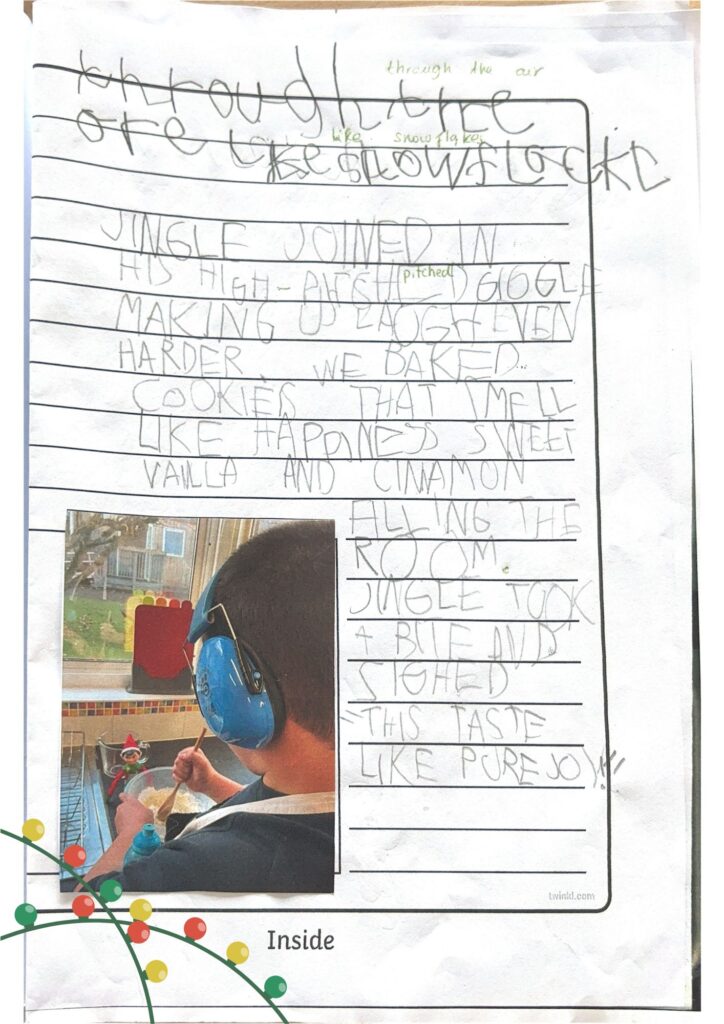 through the air
through the
are like snowflakes
like snowflacks
JINGLE JOINED IN
HIS HIGH-PITSHED pitched GIGGLE
MAKING US LAUGH EVEN
HARDER WE BAKED...
COOKIES THAT SMELL
LIKE HAPPINESS SWEET
VAILLA AND CINAMON
FILLING THE
ROOM.
JINGLE TOOK
A BITE AND
SIGHED
"THIS TASTE
LIKE PURE JOY!!"
twinkl.com
Inside